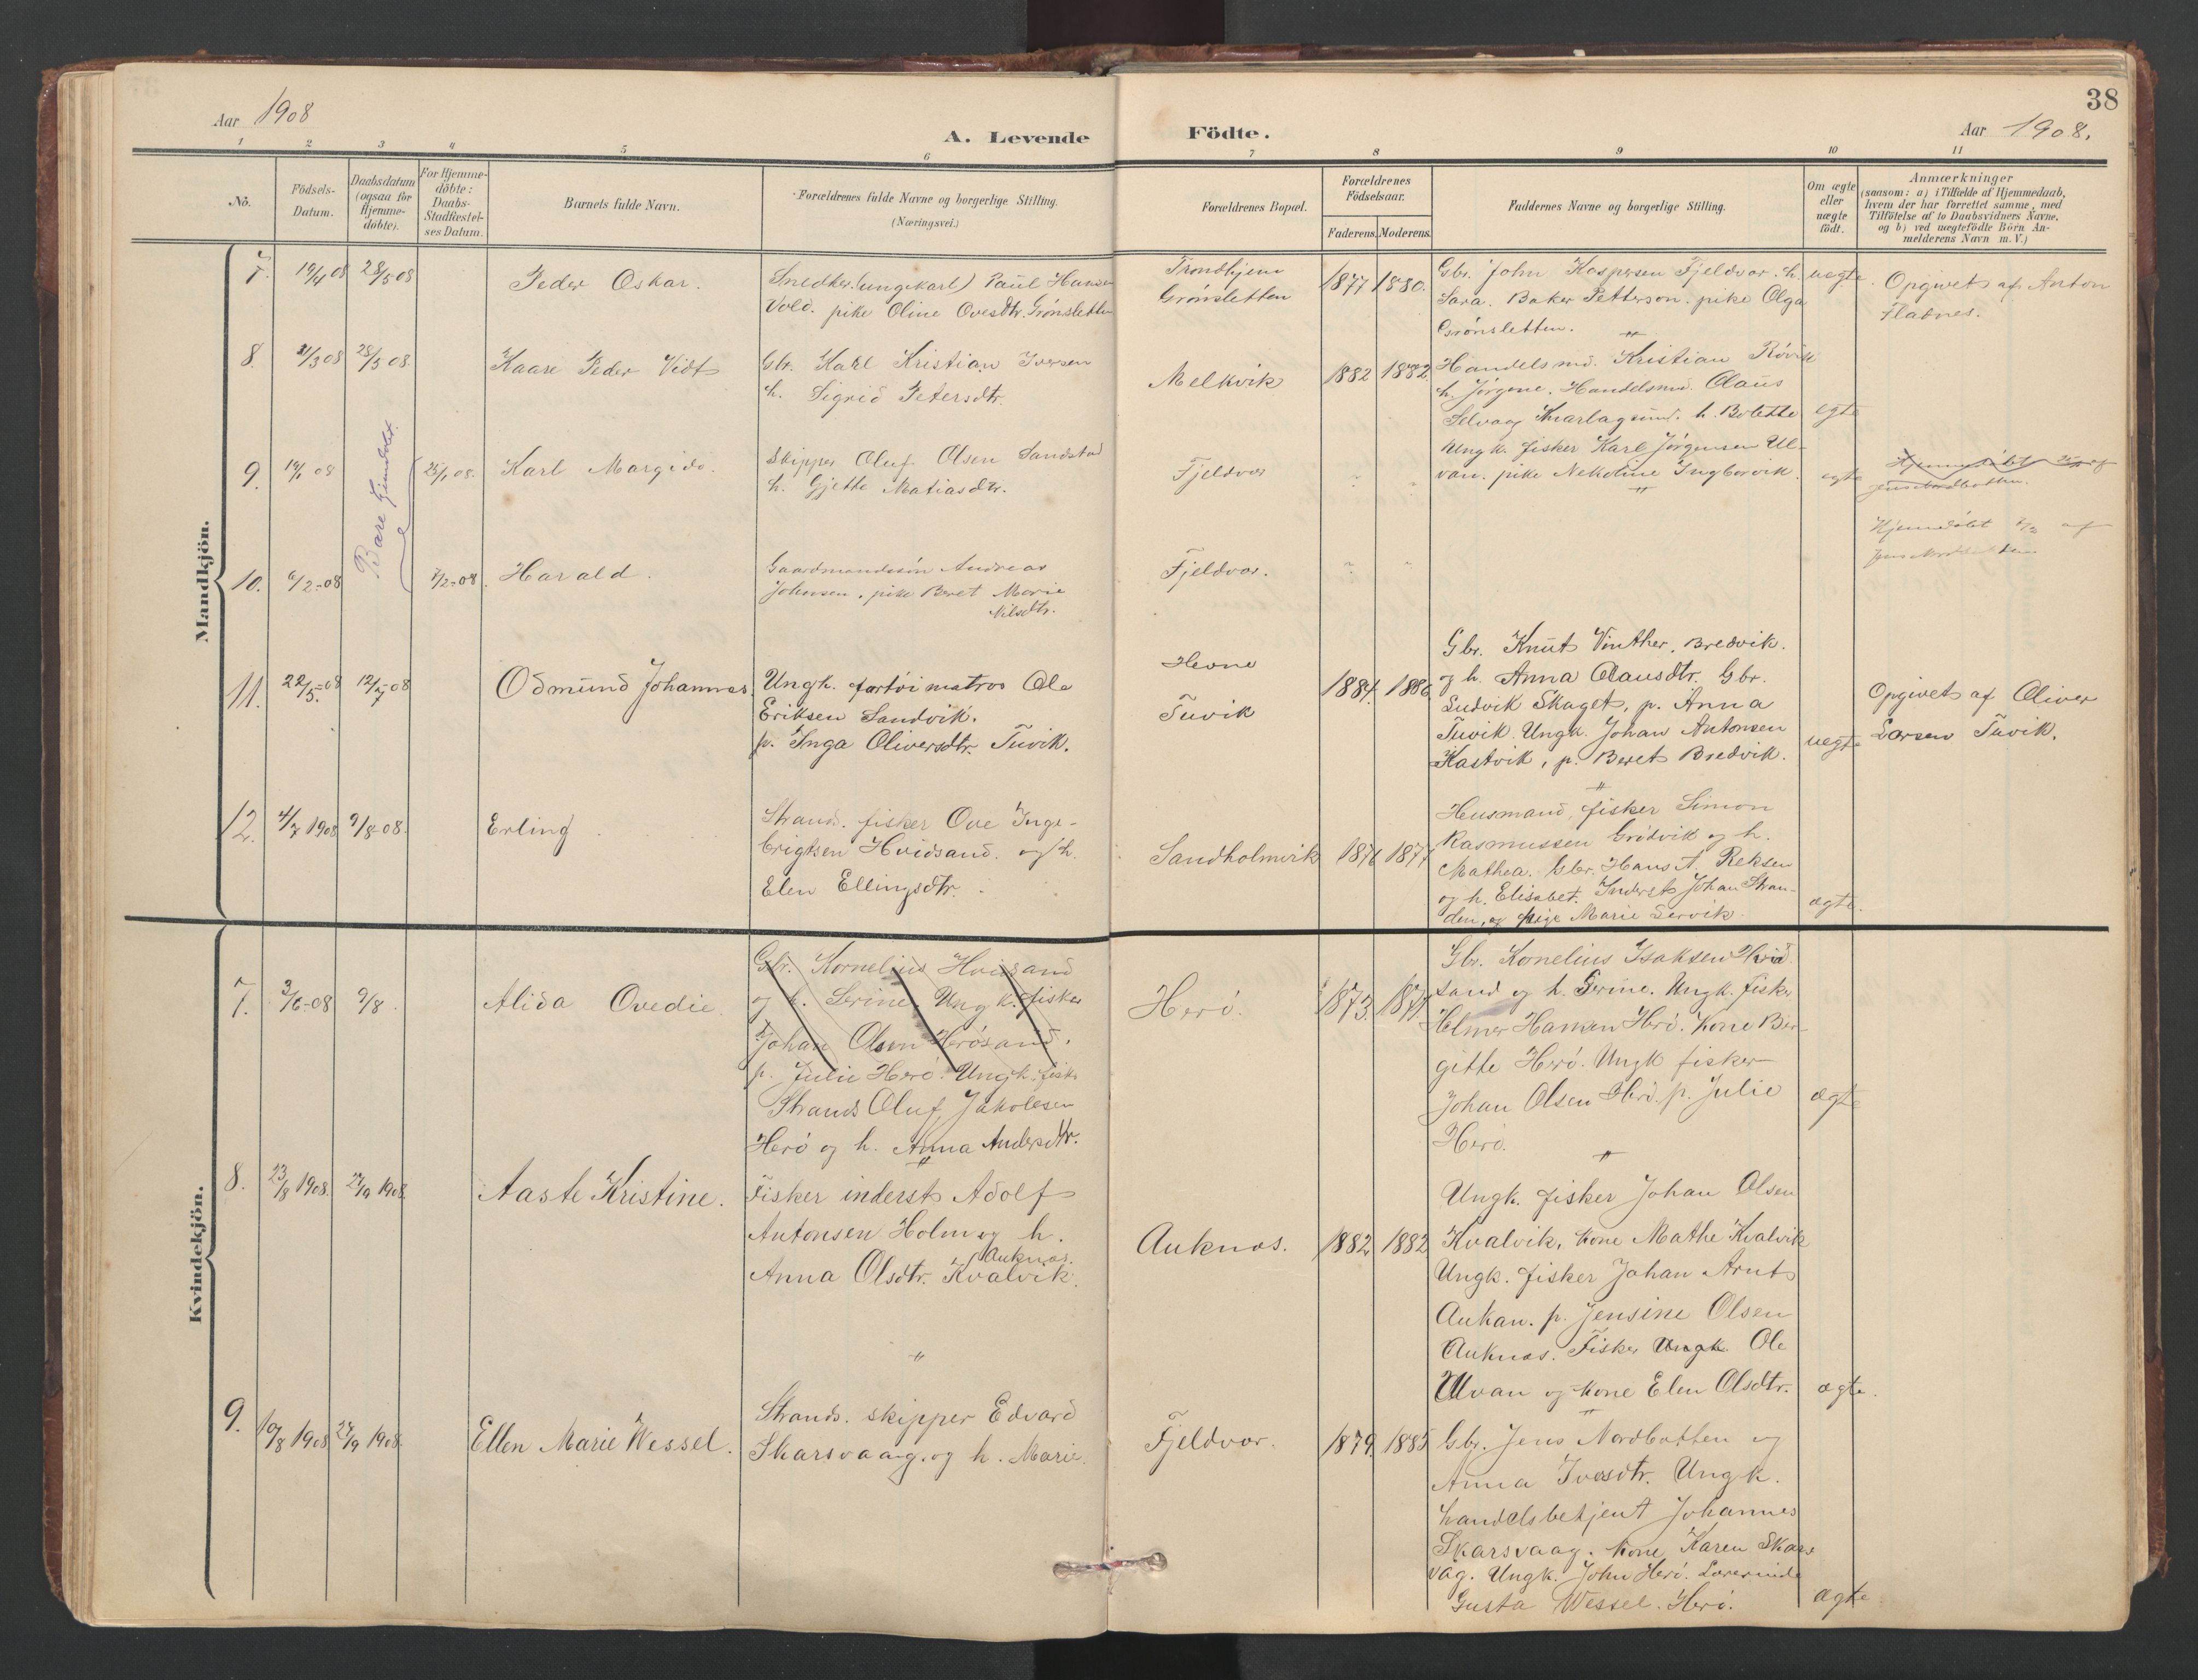 38
Aar 1908
A. Levende Födte.
Aar 1908.
1 2 3 4 5 6 7 8 9 10 11
No.
Födsels-
Datum.
Daabsdatum
(ogsaa for
Hjemme-
döbte).
For Hjemme-
döbte:
Daabs-
Stadfæstel-
ses Datum.
Barnets fulde Navn.
Forældrenes fulde Navne og borgerlige Stilling.
(Næringsvei.)
Forældrenes Bopæl.
Forældrenes
Födselsaar.
Faderens. Moderens.
Faddernes Navne og borgerlige Stilling.
Om ægte
eller
uægte
födt.
Anmærkninger
(saasom: a) i Tilfælde af Hjemmedaab,
hvem der har forrettet samme, med
Tilföielse af to Daabsvidners Navne.
og b) ved uægtefödte Börn An-
melderens Navn m. V.)
Mandkjön.
7. 19/4 08 28/5 08
Peder Oskar.
Snedker (ungekarl) Paul Hansen
Vold. pike Oline Ovesdtr. Grønsletten
Trondhjem
Grønsletten
1877 1880.
Gbr. John Kaspersen Fjeldvær. h.
Sara. Baker Petterson. pike Olga
Grønsletten.
uegte.
Opgivet af Anton
Flatnes.
8. /3 08 28/5 08.
Kaare Peder Vidt
Gbr. Karl Kristian Iversen
h. Sigrid Petersdtr.
Melkvik
1882 1882
Handelsmd. Kristian Røvik
h. Jørgene. Handelsmd. Claus
Selvaag Knarlagsund. h. Bolette
egte
9. 19/1 08
Bare hjemdøbt.
25/1 08.
Karl Margido.
Skipper Oluf Olsen Sandstad
h. Gjette Matiasdtr.
Fjeldvær
" "
Ungk. fisker Karl Jørgensen Ul-
van. pike Nekoline Ingborvik.
"
egte
Hjemmedøbt af
Jens Nordbotten.
10. 6/2-08 7/2-08.
Harald.
Gaardmandssøn Andreas
Johnsen, pike Beret Marie
Nilsdtr.
Fjeldvær.
" "
Hjemdøbt 7/2 af
Jens Nordbotten
11. 22/5-08 12/7-08
Odmund Johannes.
Ungk. fartøimatros Ole
Eriksen Sandvik.
p. Inga Oliversdtr. Tuvik.
Hevne
Tuvik
1884. 1886
Gbr. Knut Vinther, Bredvik.
og h. Anna Clausdtr. Gbr.
Ludvik Skaget, p. Anna
Tuvik. Ungk. Johan Antonsen
Kastvik, p. Beret Bredvik.
"
uegte
Opgivet af Oliver
Larsen Tuvik.
12. 4/7 1908 9/8-08.
Erling
Strands. fisker Ove Inge-
brigtsen Hvidsand. og h.
Elen Ellingsdtr.
Sandholmvik
1876 1877
Husmand, fisker Simon
Rasmussen Grødvik og h.
Mathea. Gbr. Hans A. Reksen
og h. Elisabet. Inderst Johan Stran-
den, og pige Marie Servik.
ægte.
Kvindekjön.
7. 3/6-08 9/8.
Alida Ovedie.
Gbr. Kornelius Hvidsand
og h. Serine. Ungk. fisker
Johan Olsen Herøsand.
p. Julie Herø. Ungk. fisk
Strands Oluf Jakobsen
Herø og h. Anna Andersdtr.
"
Herø.
1873. 1871.
Gbr. Kornelius Isaksen Hvid
sand og h. Serine. Ungk. fisker
Helmer Hansen Herø. Kone Ber-
gitte Herø. Ungk fisker
Johan Olsen Herø. p. Julie
Herø.
"
ægte
8. 23/8 1908. 27/9 1908.
Aaste Kristine.
Fisker inderst Adolf
Antonsen Holm og h.
Auknes.
Anna Olsdtr. Kvalvik.
"
Auknes.
1882 1882
Ungk. fisker Johan Olsen
Kvalvik, kone Mathe Kvalvik
Ungk. fisker Johan Arnt
Aukan. p. Jensine Olsen
Auknes. Fisker Ungk. Ole
Ulvan og kone Elen Olsdtr.
"
ægte.
9. 10/8 1908 27/9 1908.
Ellen Marie Wessel.
Strands. skipper Edvard
Skarsvaag. og h. Marie.
Fjeldvær.
1879. 1885
Gbr. Jens Nordbotten og
Anna Ivesdtr. Ungk.
handelsbetjent Johannes
Skarsvaag. kone Karen Skars
vag. Ungk. John Herø. Lærerinde
Gusta Wessel. Herø.
ægte